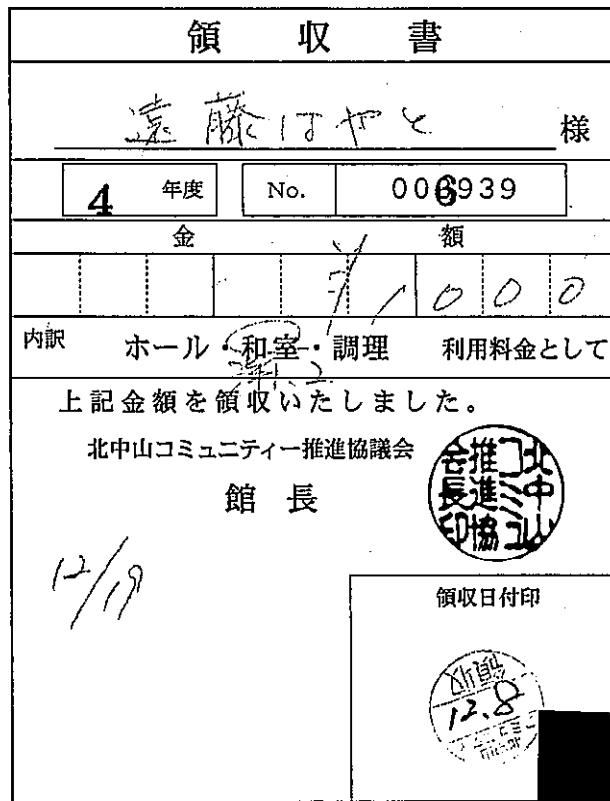 領収書
遠藤はやと 様
4 年度 No. 006939
金額
¥1,000
内訳 ホール・和室・調理 利用料金として
上記金額を領収いたしました。
北中山コミュニティー推進協議会
館長
12/19
領収日付印
領収
12.8